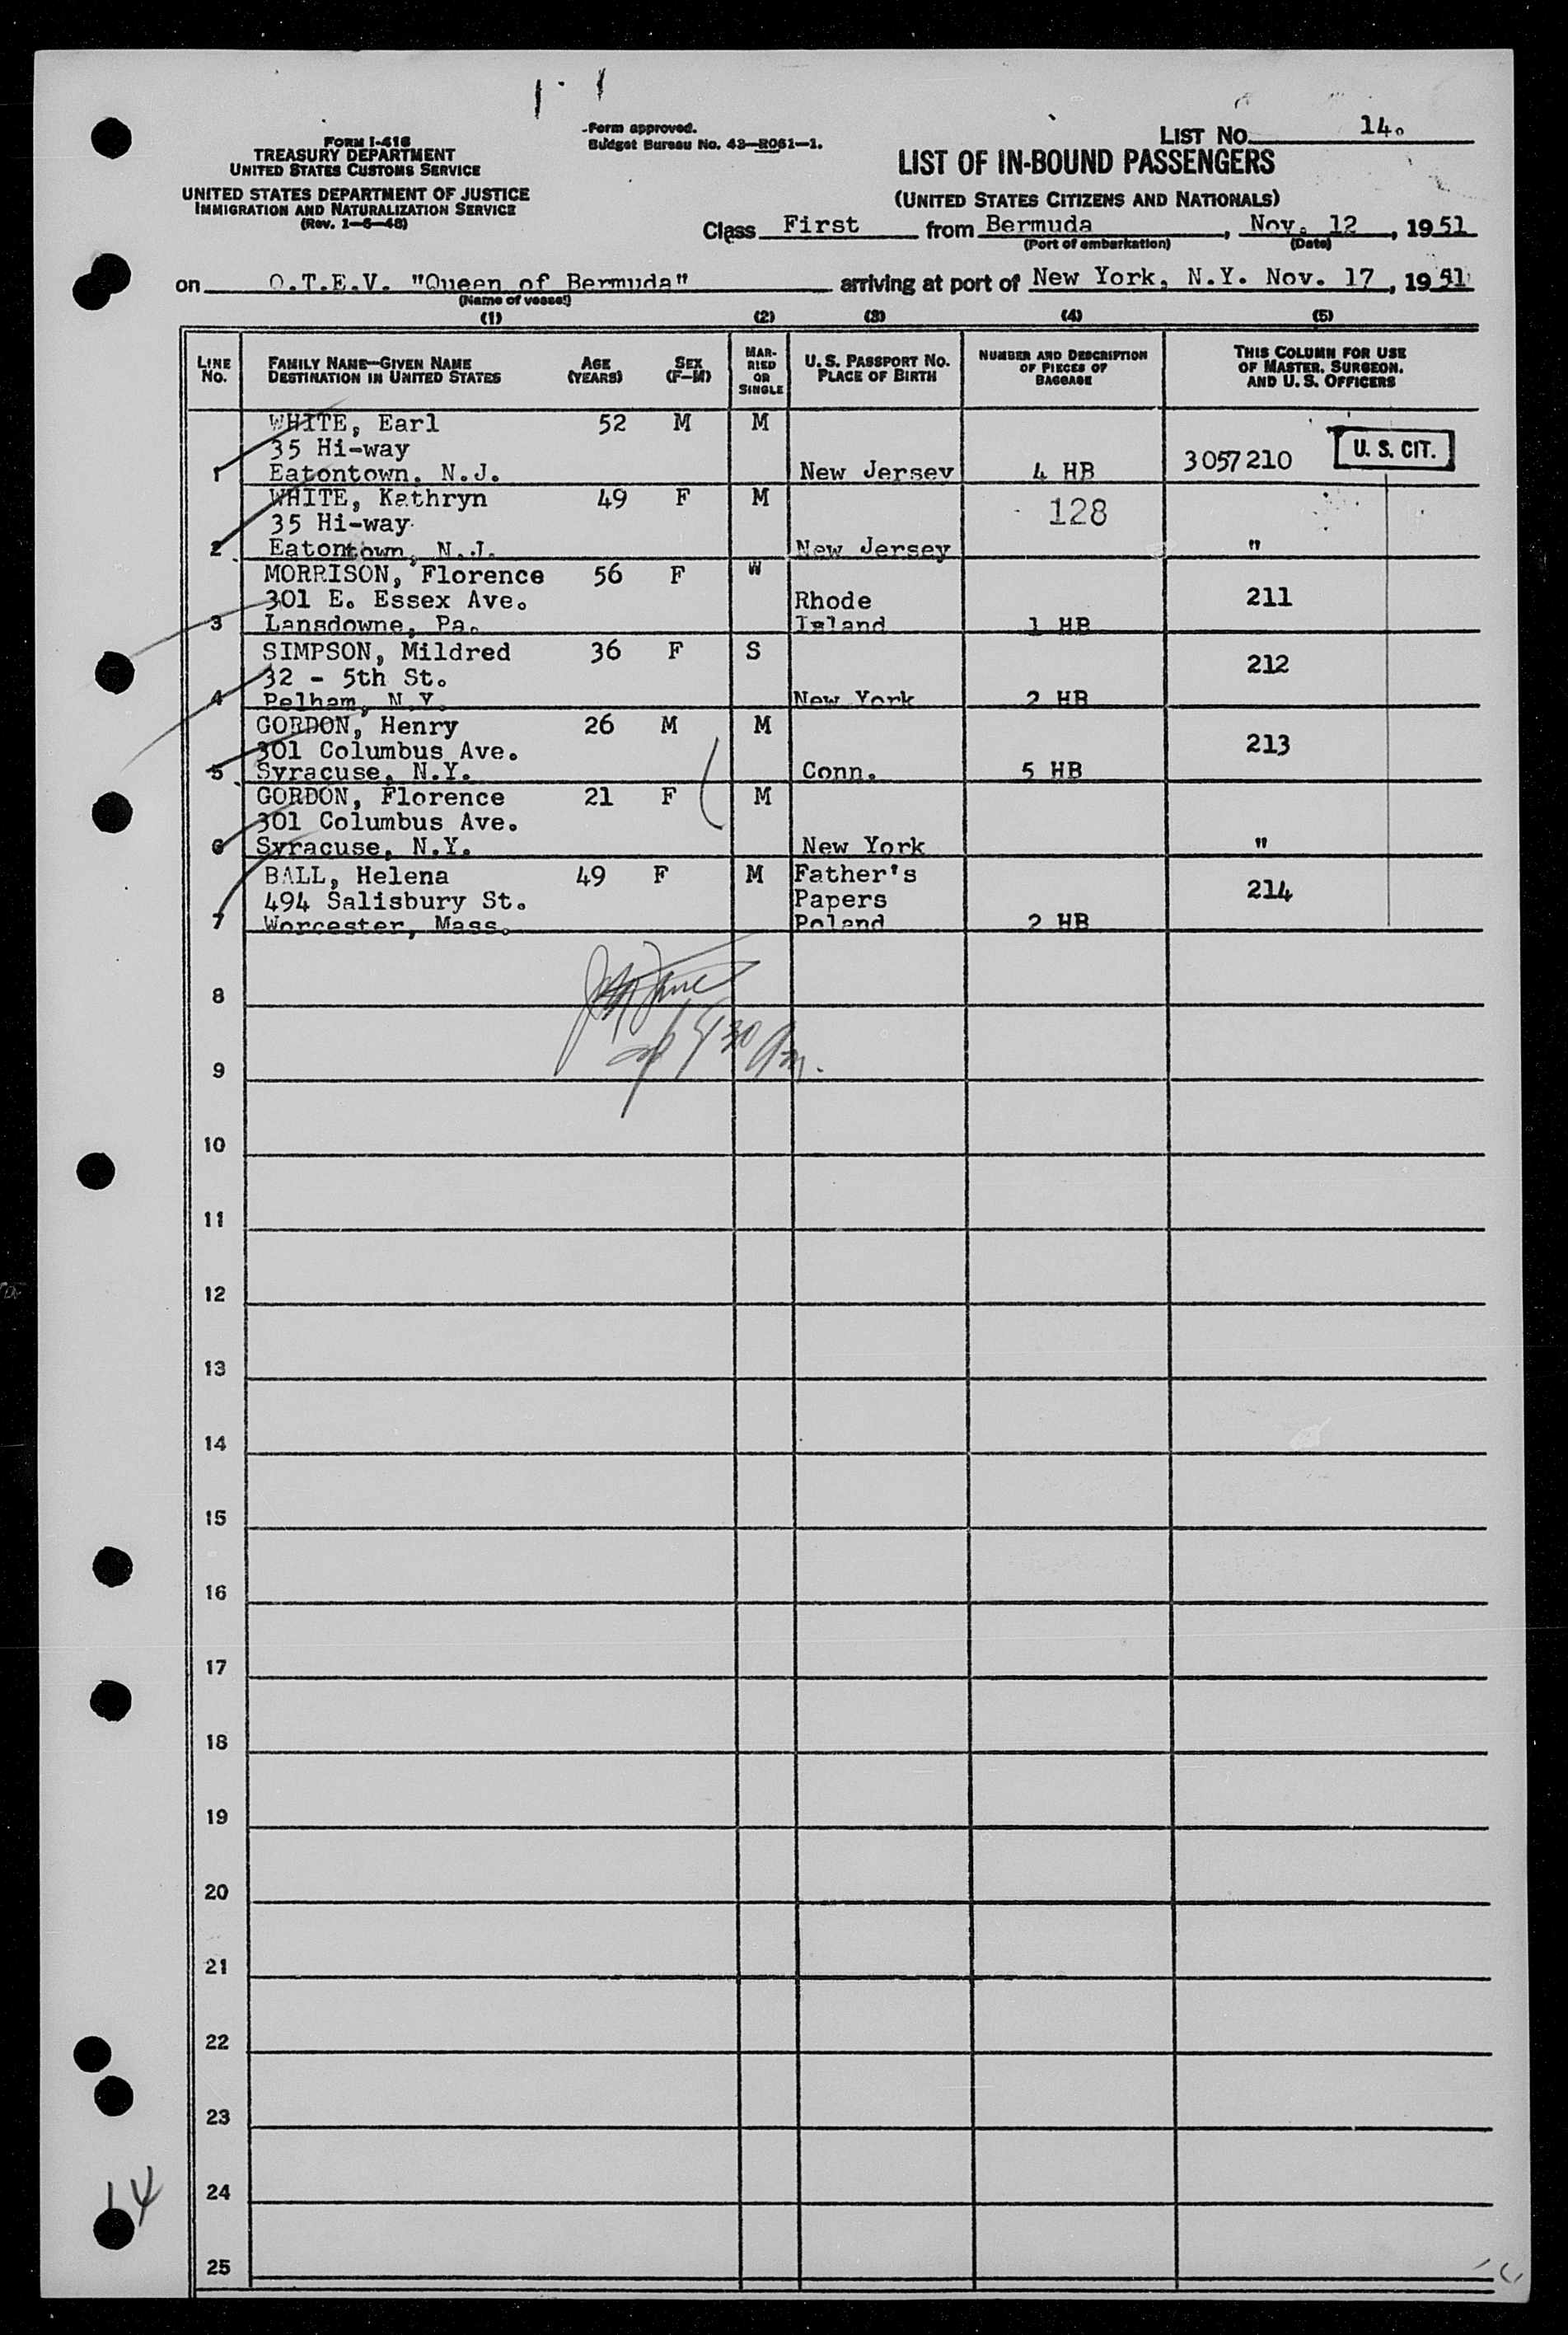 Form approved.
Budget Bureau No. 43—R061—1.
LIST NO. 14.
FORM I-416
TREASURY DEPARTMENT
UNITED STATES CUSTOMS SERVICE
UNITED STATES DEPARTMENT OF JUSTICE
IMMIGRATION AND NATURALIZATION SERVICE
(Rev. 1—6—48)
LIST OF IN-BOUND PASSENGERS
(UNITED STATES CITIZENS AND NATIONALS)
Class First from Bermuda, Nov. 12, 1951
(Port of embarkation) (Date)
on Q.T.E.V. "Queen of Bermuda" arriving at port of New York, N.Y. Nov. 17, 1951
(Name of vessel)
(1) (2) (3) (4) (5)
LINE NO.
FAMILY NAME—GIVEN NAME
DESTINATION IN UNITED STATES
AGE (YEARS)
SEX (F—M)
MARRIED OR SINGLE
U. S. PASSPORT NO.
PLACE OF BIRTH
NUMBER AND DESCRIPTION OF PIECES OF BAGGAGE
THIS COLUMN FOR USE OF MASTER, SURGEON, AND U. S. OFFICERS
WHITE, Earl 52 M M
35 Hi-way 3057210 U. S. CIT.
1 Eatontown, N.J. New Jersey 4 HB
WHITE, Kathryn 49 F M 128
35 Hi-way
2 Eatontown, N.J. New Jersey "
MORRISON, Florence 56 F W
301 E. Essex Ave. Rhode 211
3 Lansdowne, Pa. Island 1 HB
SIMPSON, Mildred 36 F S
32 - 5th St. 212
4 Pelham, N.Y. New York 2 HB
GORDON, Henry 26 M M
301 Columbus Ave. 213
5 Syracuse, N.Y. Conn. 5 HB
GORDON, Florence 21 F M
301 Columbus Ave.
6 Syracuse, N.Y. New York "
BALL, Helena 49 F M Father's
494 Salisbury St. Papers 214
7 Worcester, Mass. Poland 2 HB
8
9
10
11
12
13
14
15
16
17
18
19
20
21
22
23
24
25